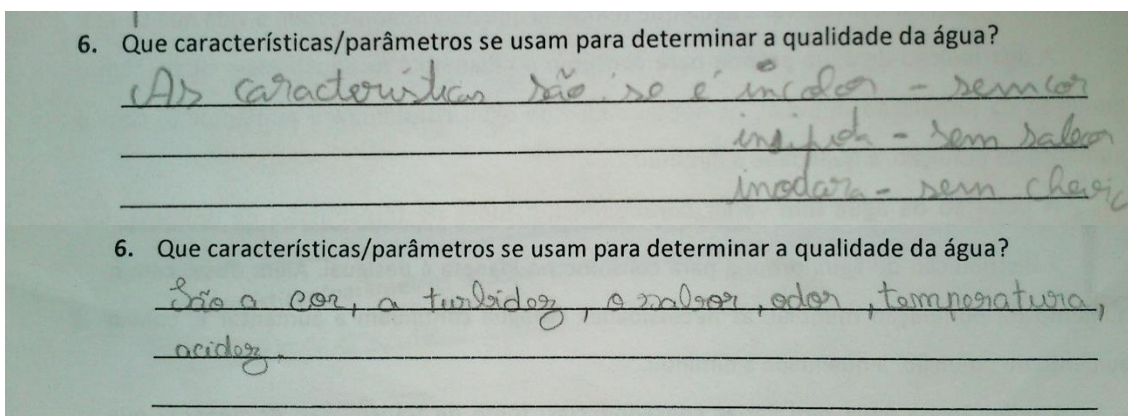 6. Que características/parâmetros se usam para determinar a qualidade da água?
As características são: se é incolor - sem cor
insípida - sem sabor
inodora - sem cheiro
6. Que características/parâmetros se usam para determinar a qualidade da água?
São a cor, a turbidez, o sabor, odor, temperatura,
acidez.